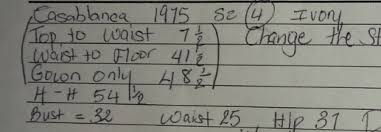 Casablanca 1975 Sz 4 Ivory
Top to Waist 7 1/2 Change the St
Waist to Floor 41 1/2
Gown only 48 1/2
H - H 54 1/2
Bust = 32 Waist 25, Hip 37